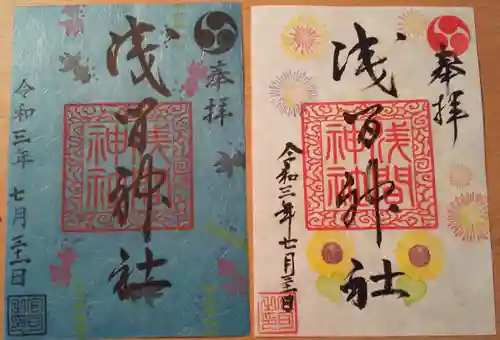 奉拝
浅間神社
浅間神社
令和三年 七月三十一日
奉拝
浅間神社
浅間神社
令和三年七月三十一日